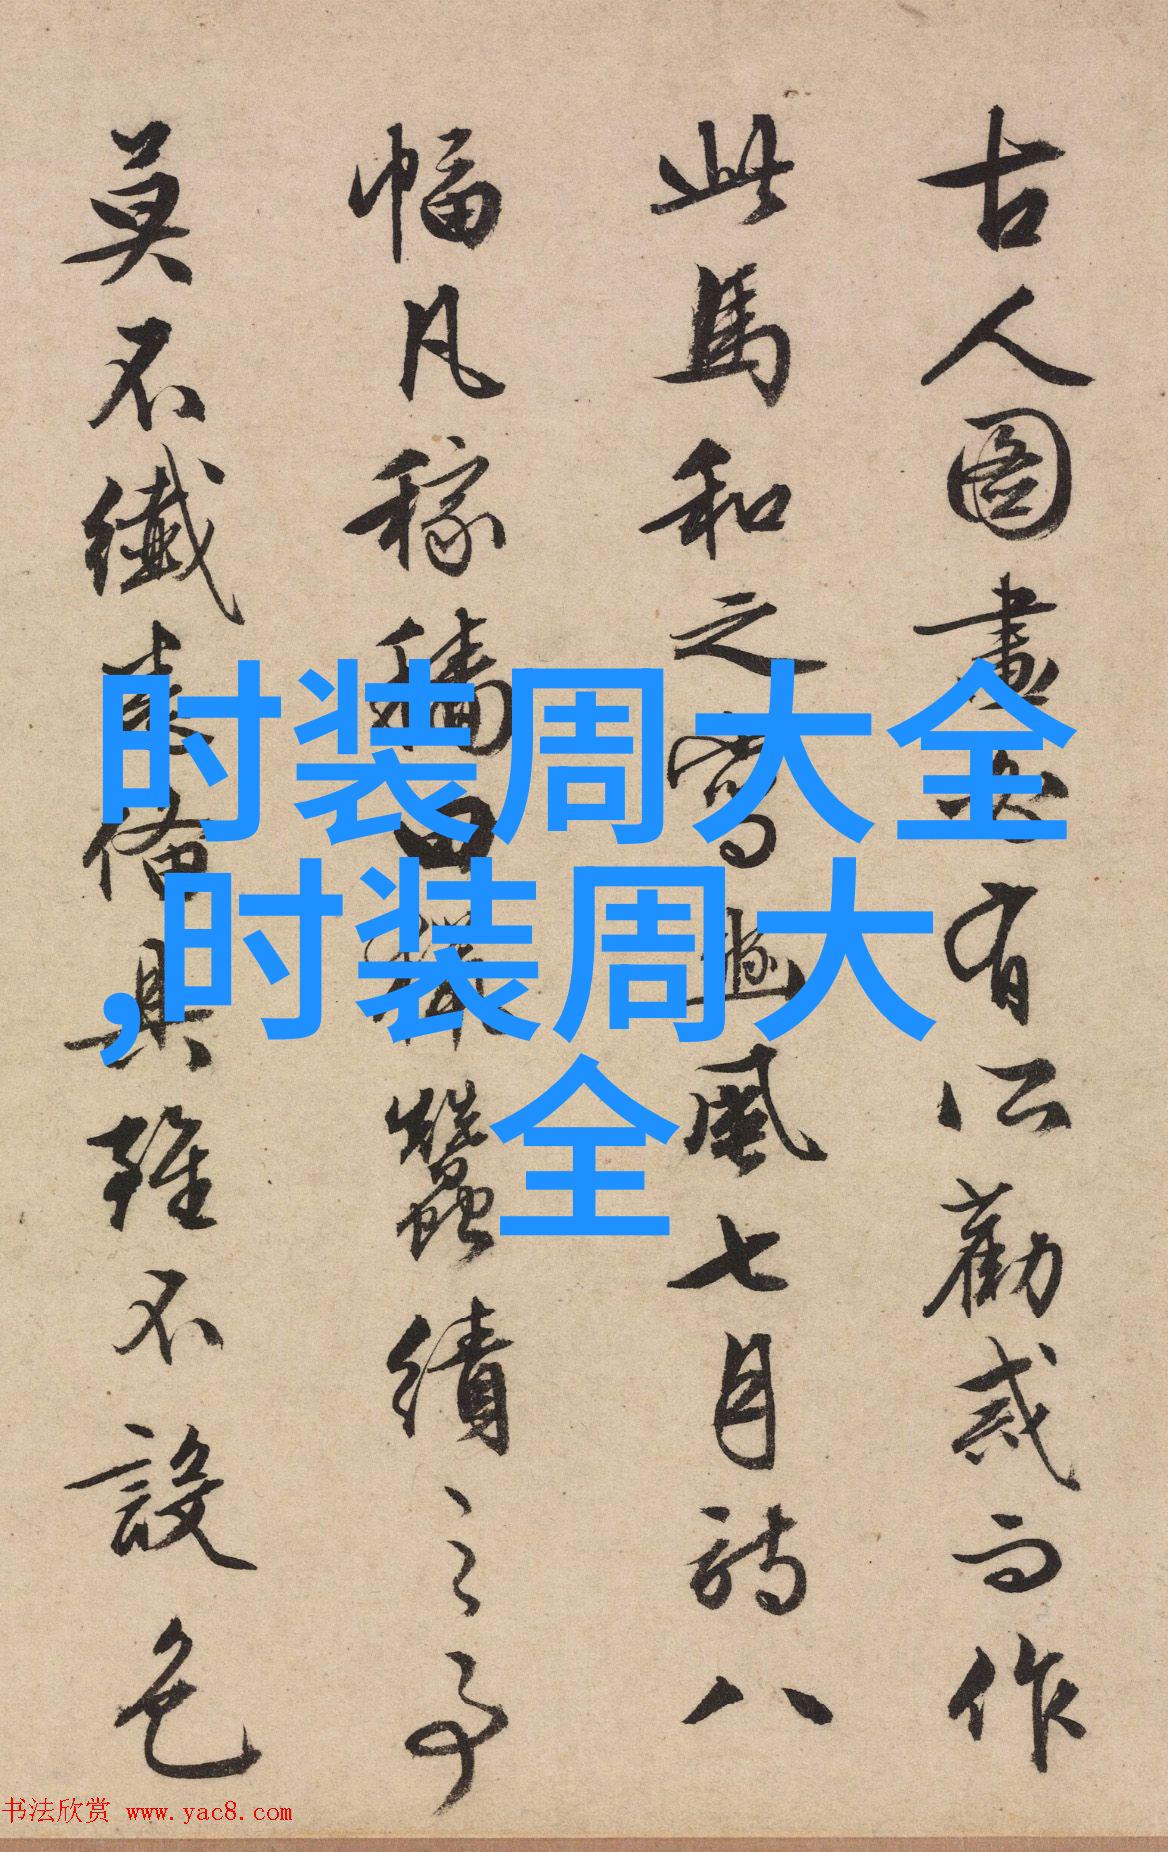 古人圖畫必有所勸戒而作
此馬和之寫豳風七月詩八
幅凡稼穡田獵蠶績之事
莫不纖悉備具雖不設色
时装周大全
,时装周大
全
书法欣赏 www.yac8.com